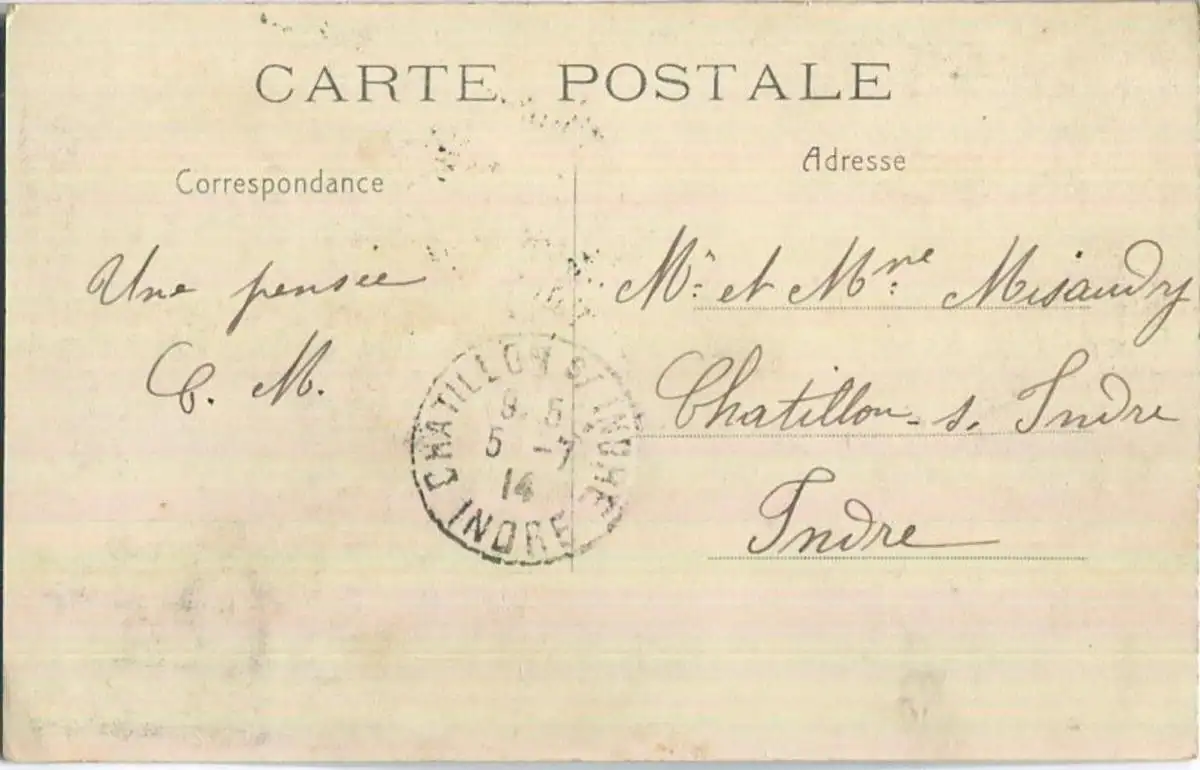 CARTE POSTALE
Correspondance
Adresse
Une pensée
C. M.
Mr. et Mme. Misaudry
Chatillon-s. Indre
Indre
CHATILLON S/ INDRE
5 -7
14
INDRE